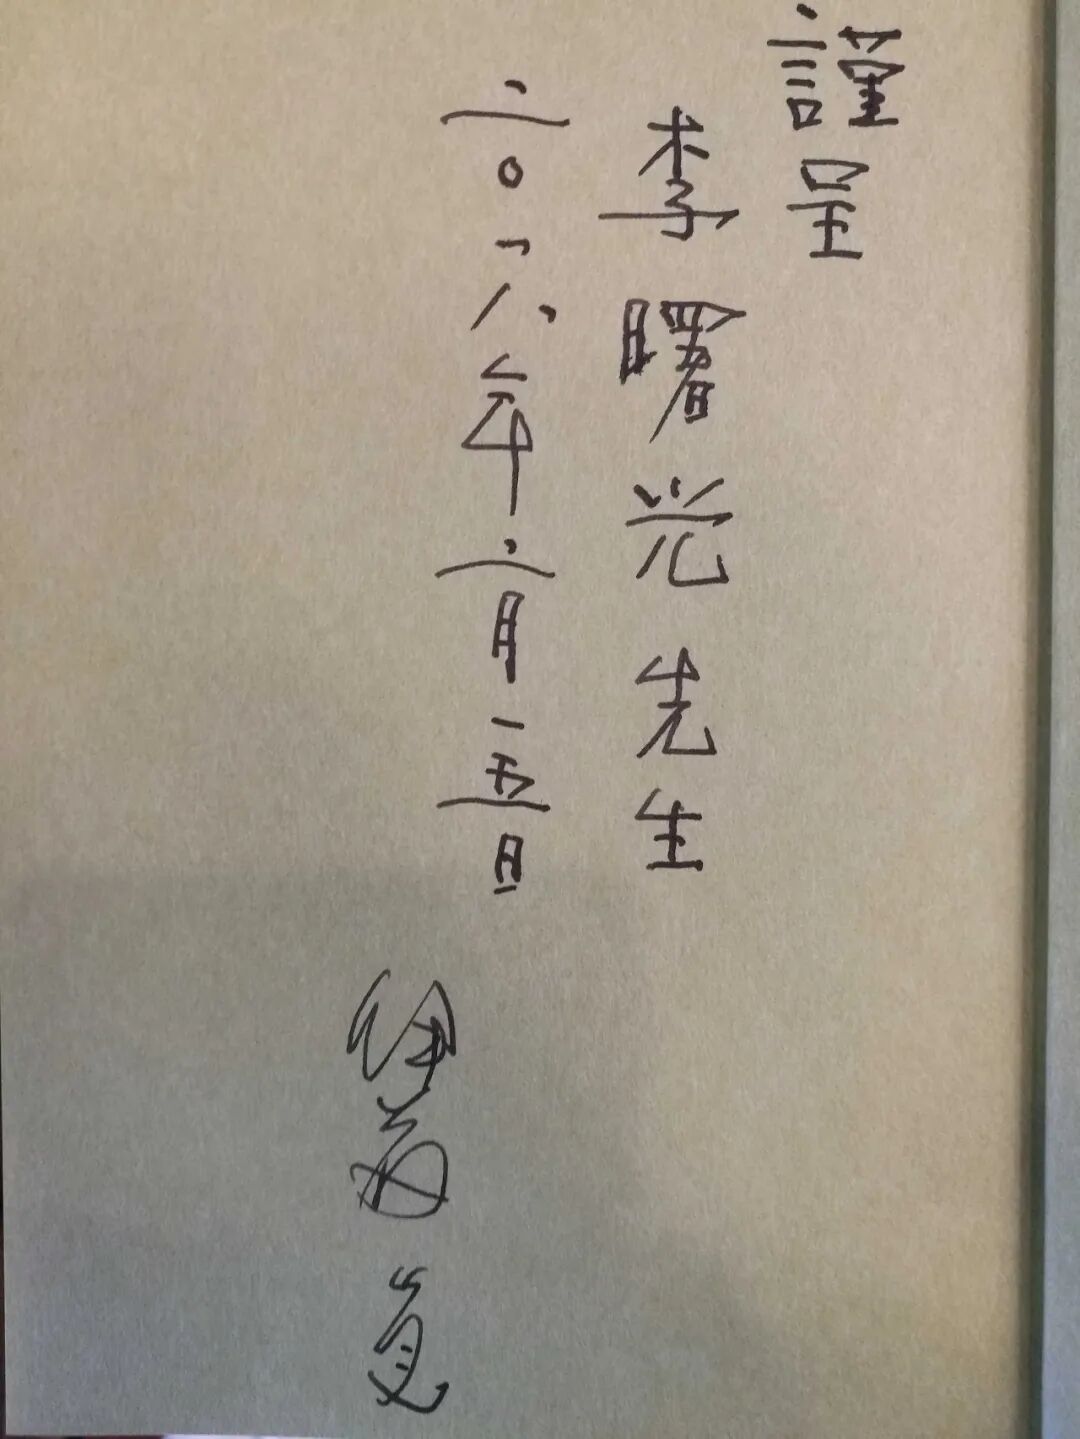 謹呈
李曙光先生
二〇一八年六月一五日